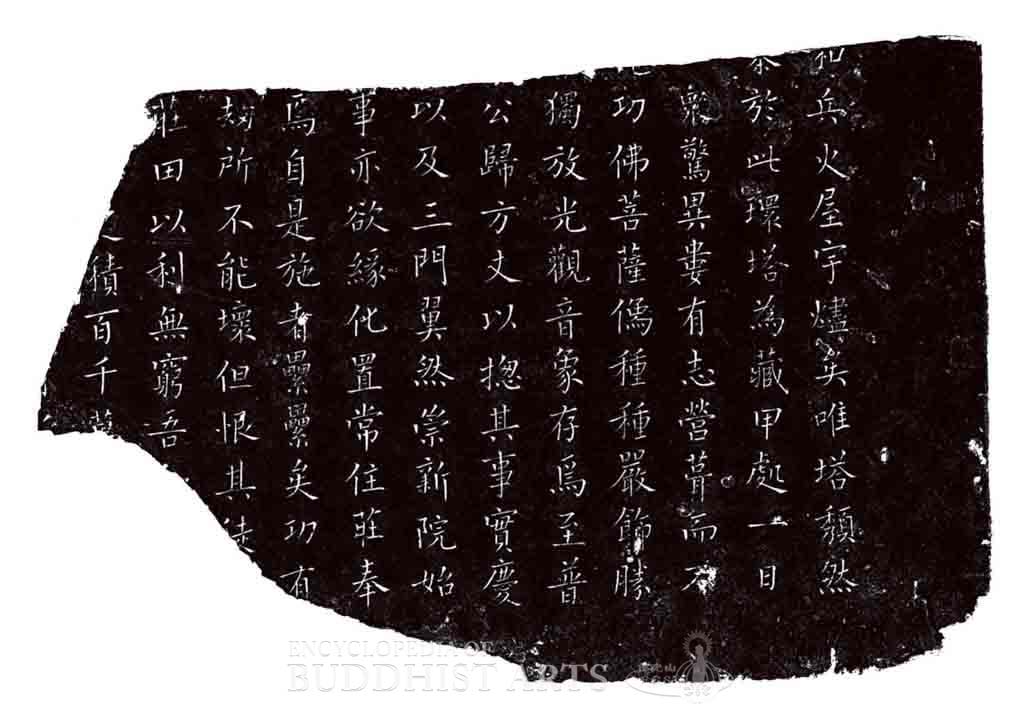 兵火屋宇燼矣唯塔頹然
於此環塔為藏甲處一日
眾驚異婁有志營葺而不
功佛菩薩儀種種嚴飾勝
獨放光觀音象存焉至普
公歸方丈以摠其事實慶
以及三門翼然崇新院始
事亦欲緣化置常住莊奉
焉自是施者纍纍矣功有
劫所不能壞但恨其徒
莊田以利無窮吾
積百千萬
ENCYCLOPEDIA OF
BUDDHIST ARTS